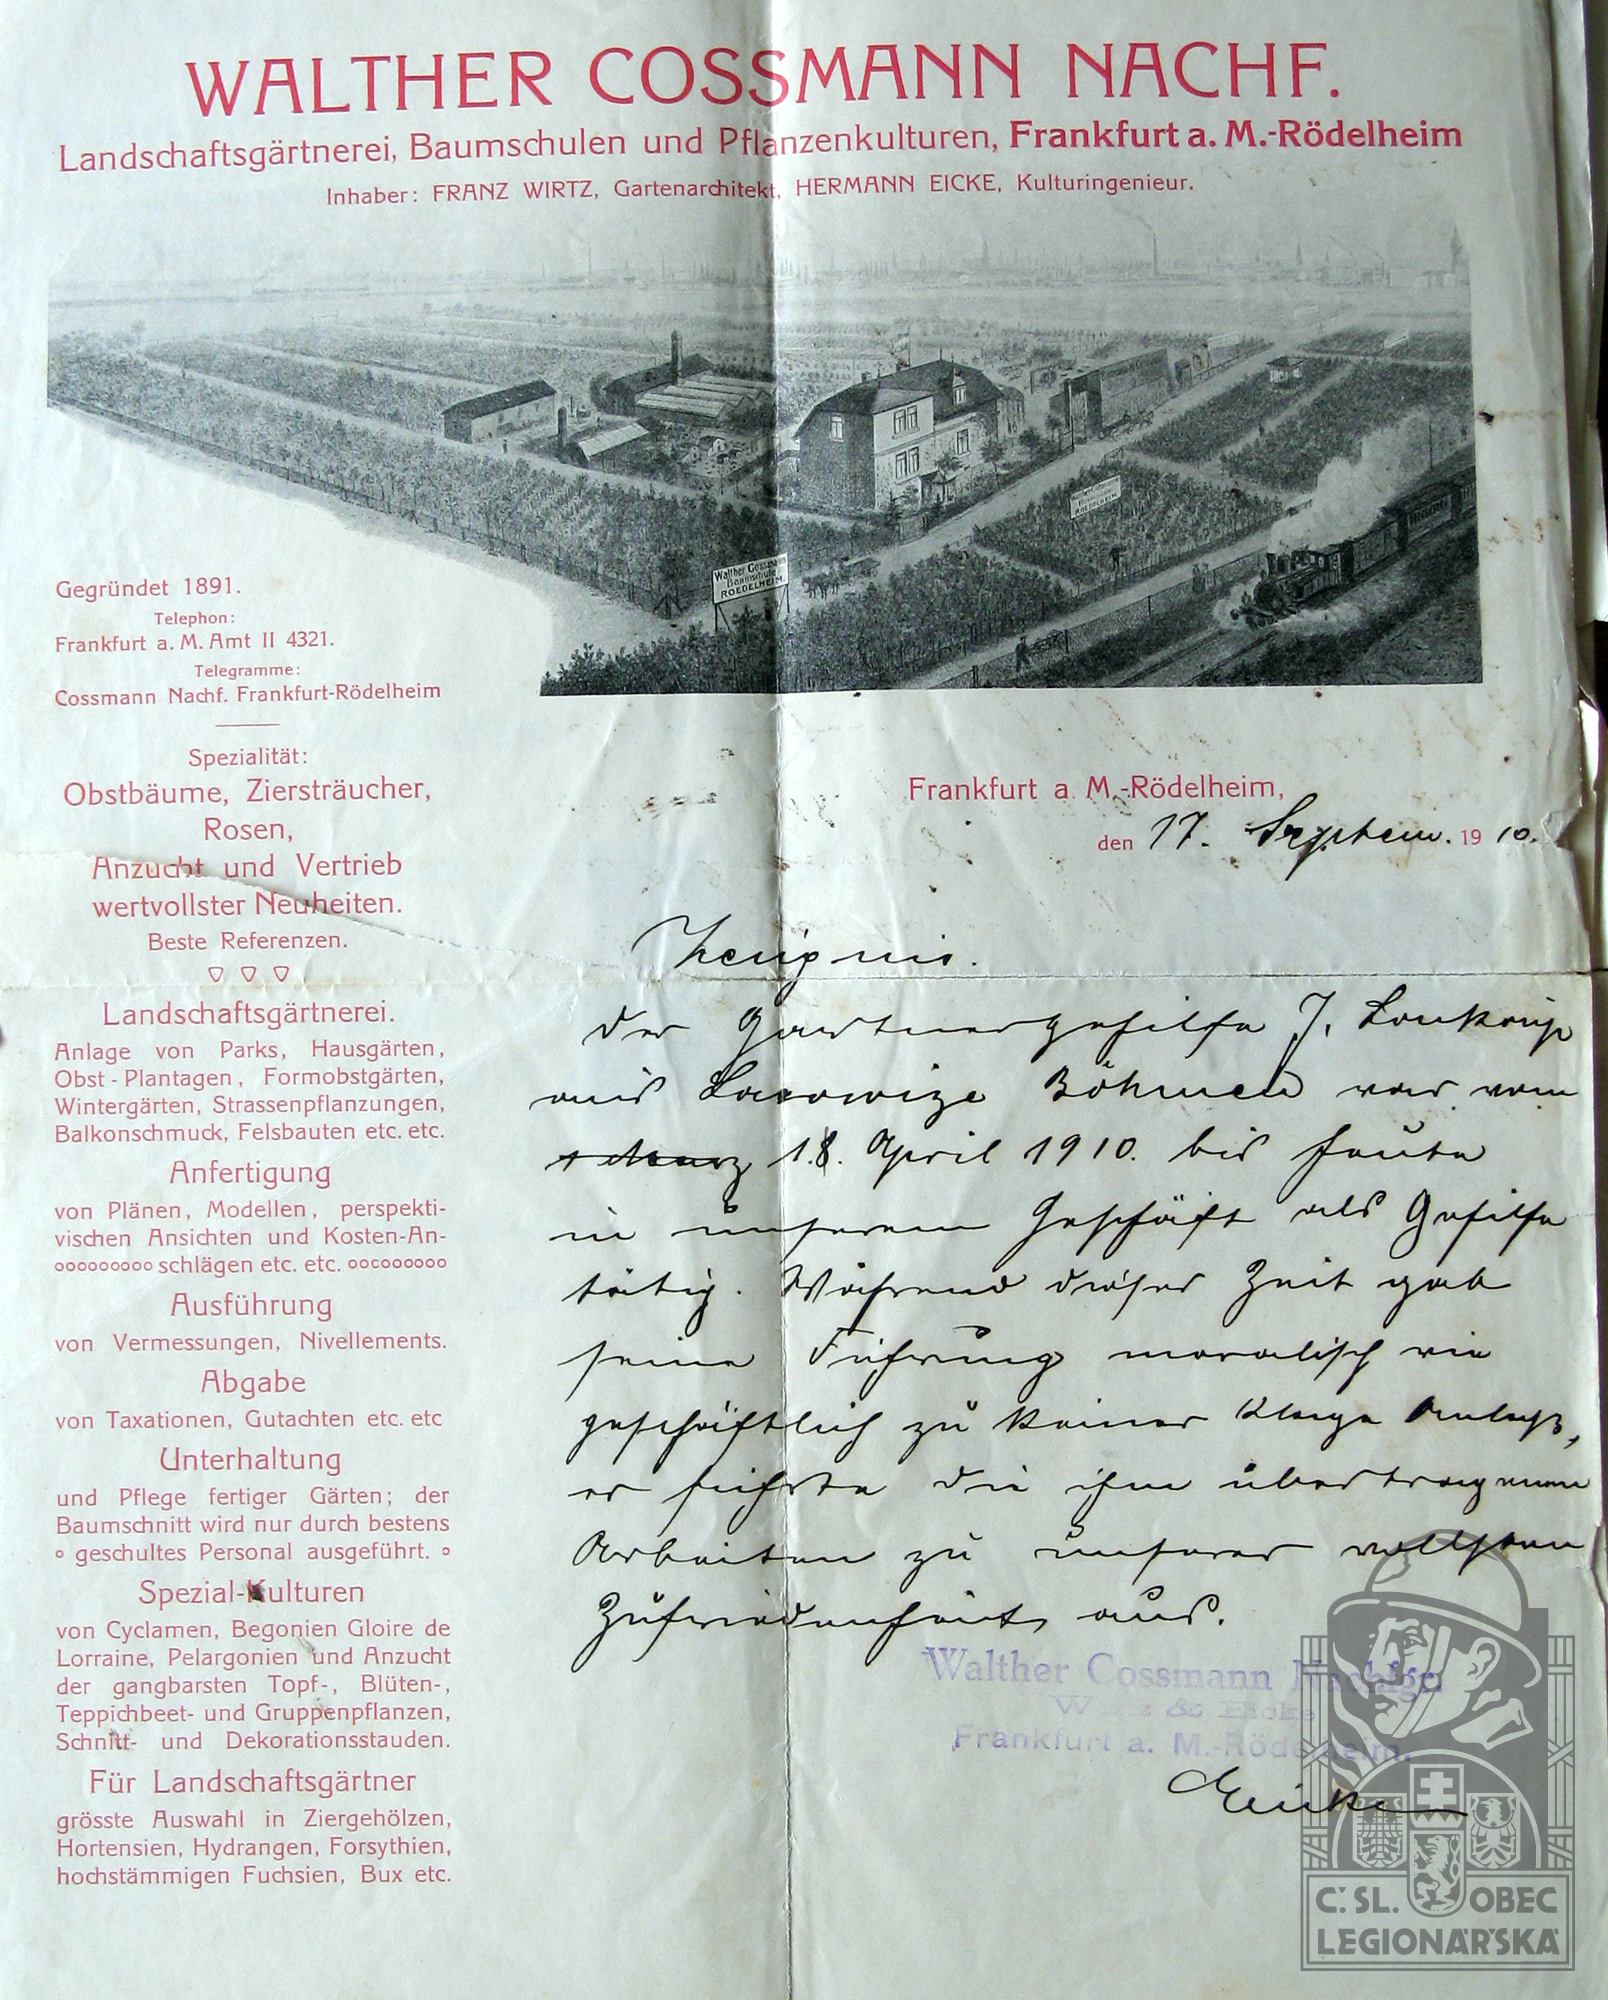 WALTHER COSSMANN NACHF.
Landschaftsgärtnerei, Baumschulen und Pflanzenkulturen, Frankfurt a. M.-Rödelheim
Inhaber: FRANZ WIRTZ, Gartenarchitekt, HERMANN EICKE, Kulturingenieur.
Walther Cossmann
Baumschule
ROEDELHEIM.
Gegründet 1891.
Telephon:
Frankfurt a. M. Amt II 4321.
Telegramme:
Cossmann Nachf. Frankfurt-Rödelheim
Spezialität:
Obstbäume, Ziersträucher,
Rosen,
Anzucht und Vertrieb
wertvollster Neuheiten.
Beste Referenzen.
Landschaftsgärtnerei.
Anlage von Parks, Hausgärten,
Obst-Plantagen, Formobstgärten,
Wintergärten, Strassenpflanzungen,
Balkonschmuck, Felsbauten etc. etc.
Anfertigung
von Plänen, Modellen, perspekti-
vischen Ansichten und Kosten-An-
schlägen etc. etc.
Ausführung
von Vermessungen, Nivellements.
Abgabe
von Taxationen, Gutachten etc. etc
Unterhaltung
und Pflege fertiger Gärten; der
Baumschnitt wird nur durch bestens
geschultes Personal ausgeführt.
Spezial-Kulturen
von Cyclamen, Begonien Gloire de
Lorraine, Pelargonien und Anzucht
der gangbarsten Topf-, Blüten-,
Teppichbeet- und Gruppenpflanzen,
Schnitt- und Dekorationsstauden.
Für Landschaftsgärtner
grösste Auswahl in Ziergehölzen,
Hortensien, Hydrangen, Forsythien,
hochstämmigen Fuchsien, Bux etc.
Frankfurt a. M.-Rödelheim,
den 17. Septem. 1910.
Zeugnis.
Der Gartnergehilfe J.
aus Böhmen war vom
18. April 1910. bis heute
in unserem Geschäft als Gehilfe
tätig. Während dieser Zeit gab
seine Führung moralisch wie
geschäftlich zu keiner Klage Anlaß,
er führte die ihm übertragenen
Arbeiten zu unserer vollsten
Zufriedenheit aus.
Walther Cossmann Nachfgr.
Wirtz & Eicke
Frankfurt a. M.-Rödelheim.
Č. SL. OBEC
LEGIONÁŘSKÁ